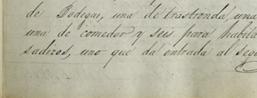 de Bodegas, una de trastienda, una
una de comedor y seis para habita
saderos, uno que da entrada al segu